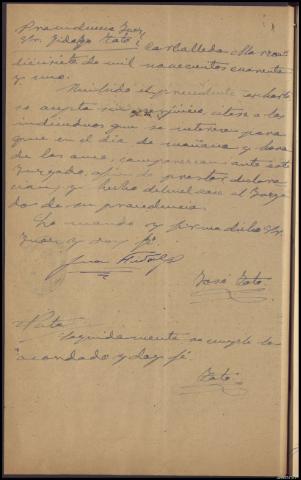 Providencia Juez
Sr. Hidalgo Toto
Carballeda Marzo
diecisiete de mil novecientos cuarenta
y uno.
Recibido el precedente exhorto
se acepta sin perjuicio, citese a los
individuos que se interesa para
que en el dia de mañana y hora
de las once, comparezcan ante este
Juzgado, a fin de prestar declara
cion, y hecho devuelvase al Juzga
do de su procedencia.
Lo mando y firma dicho Sr.
Juez y doy fé.
José Toto
Nota
Seguidamente se cumple lo
acordado y doy fé.
Toto